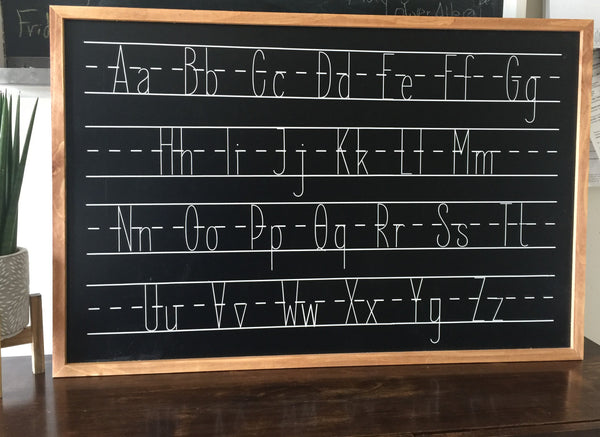 Aa Bb Cc Dd Ee Ff Gg
Hh Ii Jj Kk Ll Mm
Nn Oo Pp Qq Rr Ss Tt
Uu Vv Ww Xx Yy Zz